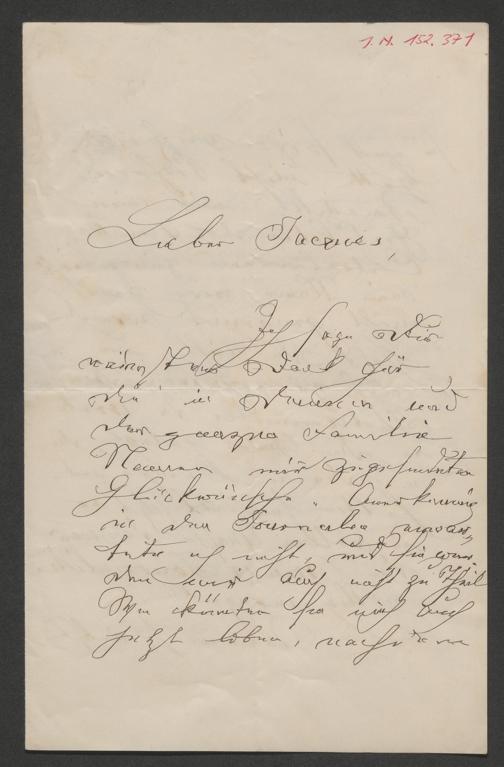 I. N. 152.371
Lieber Jacques,
Ich sage Dir
Dank für
die in Deinem und
der ganzen Familie
Namen mir zugesandten
Glückwünsche. Anerkennung
in den Journalen erwar-
tete ich nicht, und sie wur-
den mir auch nicht zu Theil
Wie könnten sie mich auch
jetzt loben, nachdem